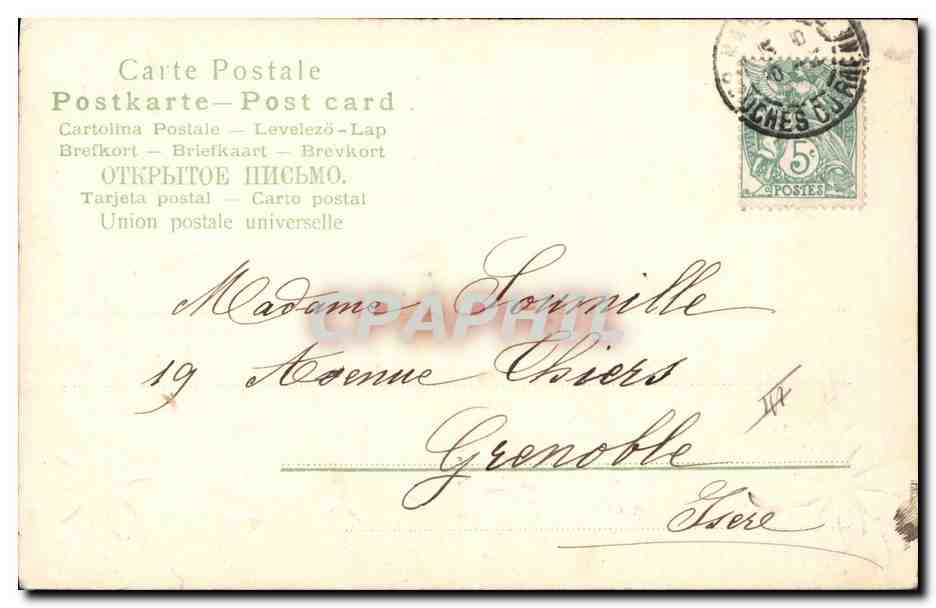 Carte Postale
Postkarte — Post card
Cartolina Postale — Levelező-Lap
Brefkort — Briefkaart — Brevkort
ОТКРЫТОЕ ПИСЬМО.
Tarjeta postal — Carto postal
Union postale universelle
UCHES DU RHÔNE
5c
POSTES
Madame Soumille
CPAPHIL
19 Avenue Thiers
Grenoble
Isère